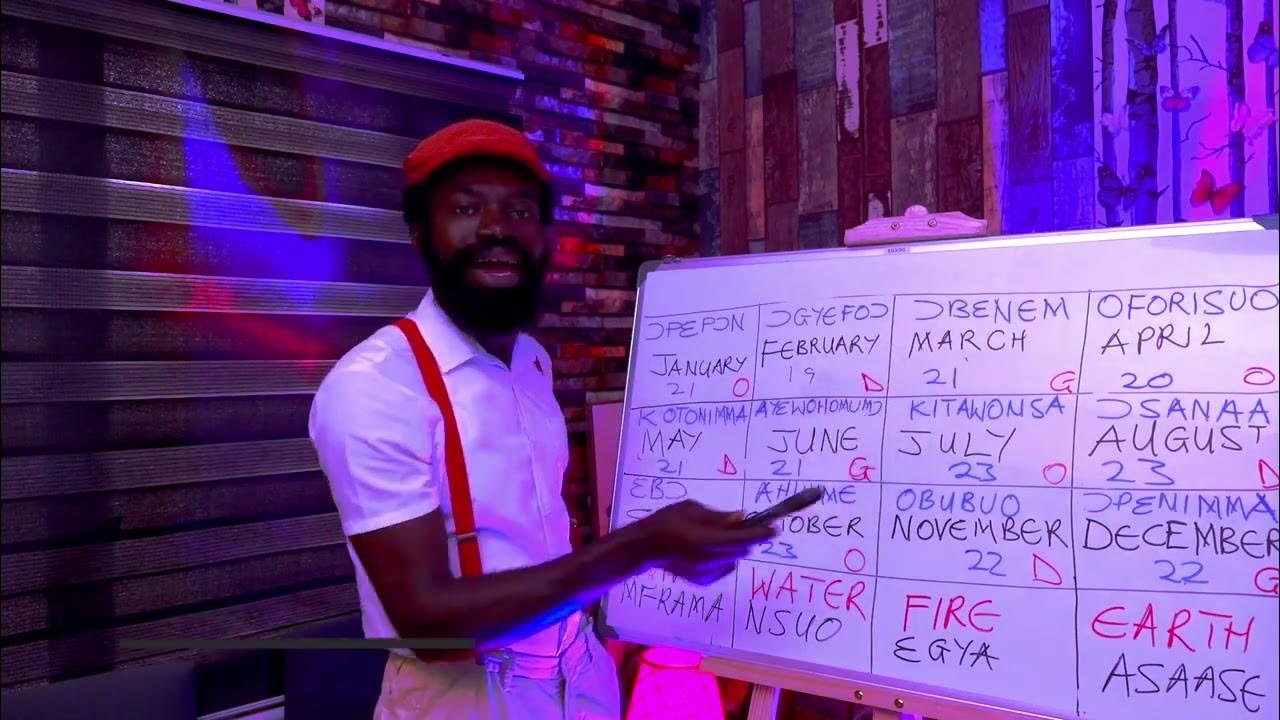 ƆPEPƆN
JANUARY
21 O
ƆGYEFOƆ
FEBRUARY
19 D
ƆBENEM
MARCH
21 G
OFORISUO
APRIL
20 O
KOTONIMMA
MAY
21 D
AYEWOHOMUMƆ
JUNE
21 G
KITAWONSA
JULY
23 O
ƆSANAA
AUGUST
23 D
ƐBƆ
23 O
OBUBUO
NOVEMBER
22 D
ƆPENIMMA
DECEMBER
22 G
MFRAMA
WATER
NSUO
FIRE
ƐGYA
EARTH
ASAASE